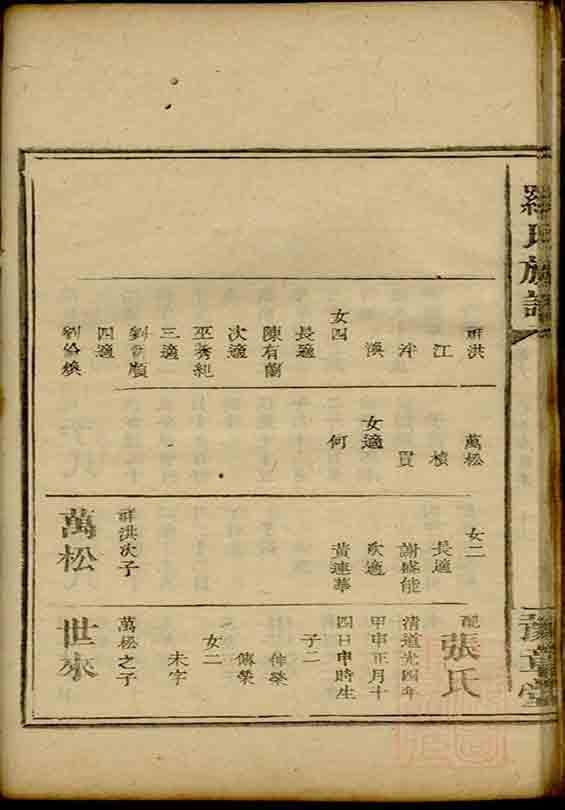 羅氏族譜
豫章堂
群洪
江
洋
渙
女四
長適
陳有蘭
次適
巫秀純
三適
劉
順
四適
劉
煥
萬松
檳
貫
女適
何
女二
長適
謝盛能
次適
黃連華
群洪次子
萬松
配張氏
清道光四年
甲申正月十
四日申時生
子二
仲榮
傳榮
女二
未字
萬松之子
世來